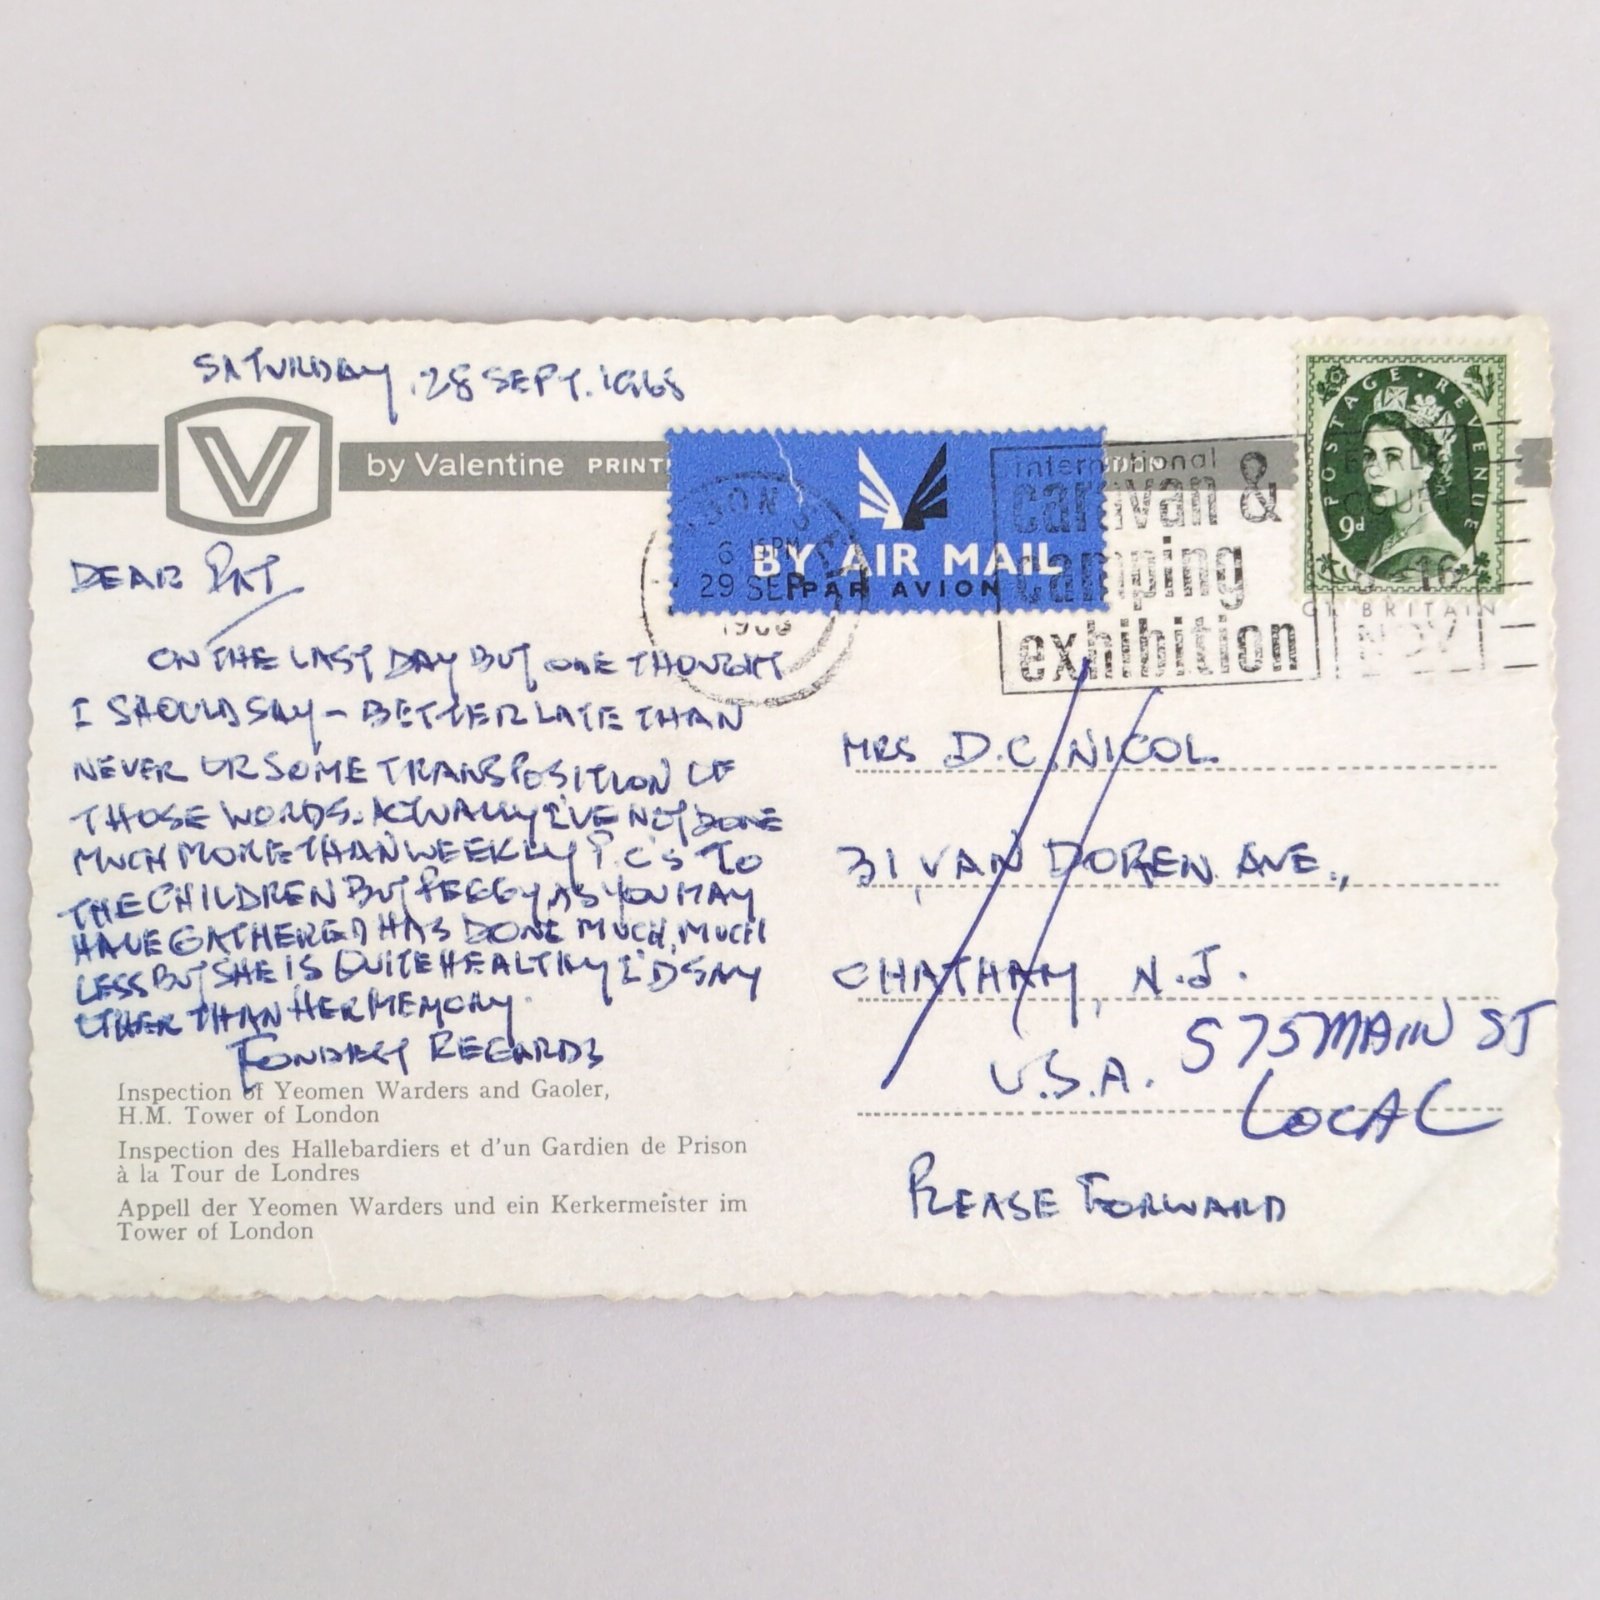 SATURDAY, 28 SEPT. 1968
V
by Valentine PRINT
BY AIR MAIL
PAR AVION
6 15PM
29 SEP
international
caravan &
camping
exhibition
EARLS
COURT
16
NOV
POSTAGE · REVENUE
9d
GT. BRITAIN
DEAR PAT
ON THE LAST DAY BUT ONE THOUGHT
I SHOULD SAY - BETTER LATE THAN
NEVER OR SOME TRANSPOSITION OF
THOSE WORDS. ACTUALLY I'VE NOT DONE
MUCH MORE THAN WEEKLY P.C'S TO
THE CHILDREN BUT PEGGY, AS YOU MAY
HAVE GATHERED HAS DONE MUCH, MUCH
LESS BUT SHE IS QUITE HEALTHY I'D SAY
OTHER THAN HER MEMORY.
FONDEST REGARDS
Inspection of Yeomen Warders and Gaoler,
H.M. Tower of London
Inspection des Hallebardiers et d'un Gardien de Prison
à la Tour de Londres
Appell der Yeomen Warders und ein Kerkermeister im
Tower of London
MRS D.C. NICOL.
31, VAN DOREN AVE.,
CHATHAM, N.J.
U.S.A.
575 MAIN ST
LOCAL
PLEASE FORWARD